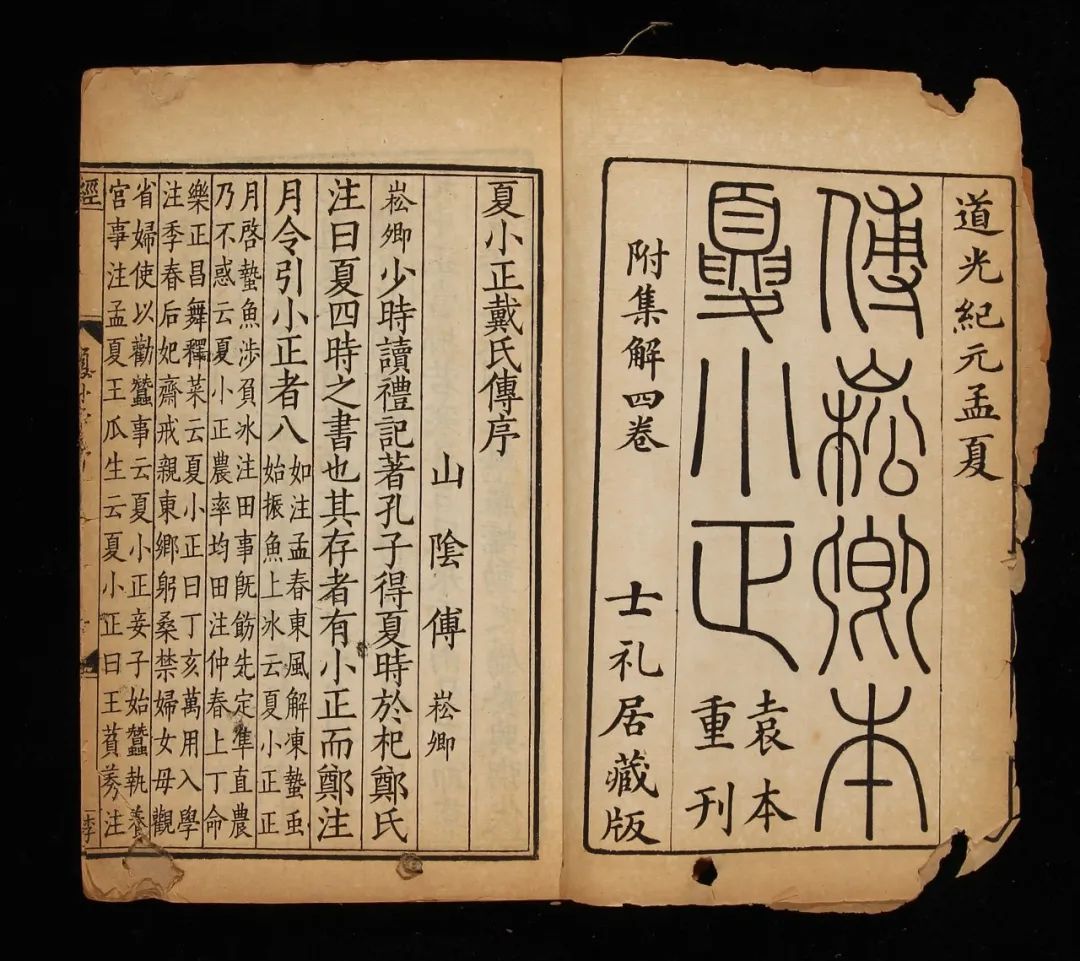 道光紀元孟夏
傅崧卿本
夏小正
袁本
重刊
附集解四卷
士礼居藏版
夏小正戴氏傳序
山陰傅崧卿
崧卿少時讀禮記著孔子得夏時於杞鄭氏
注曰夏四時之書也其存者有小正而鄭注
月令引小正者八
如注孟春東風解凍蟄虫
始振魚上冰云夏小正正
月啓蟄魚涉負冰注田事既飭先定準直農
乃不惑云夏小正農率均田注仲春上丁命
樂正昌舞釋菜云夏小正曰丁亥萬用入學
注季春后妃齋戒親東鄉躬桑禁婦女毋觀
省婦使以勸蠶事云夏小正妾子始蠶執養
宮事注孟夏王瓜生云夏小正曰王萯莠注
經